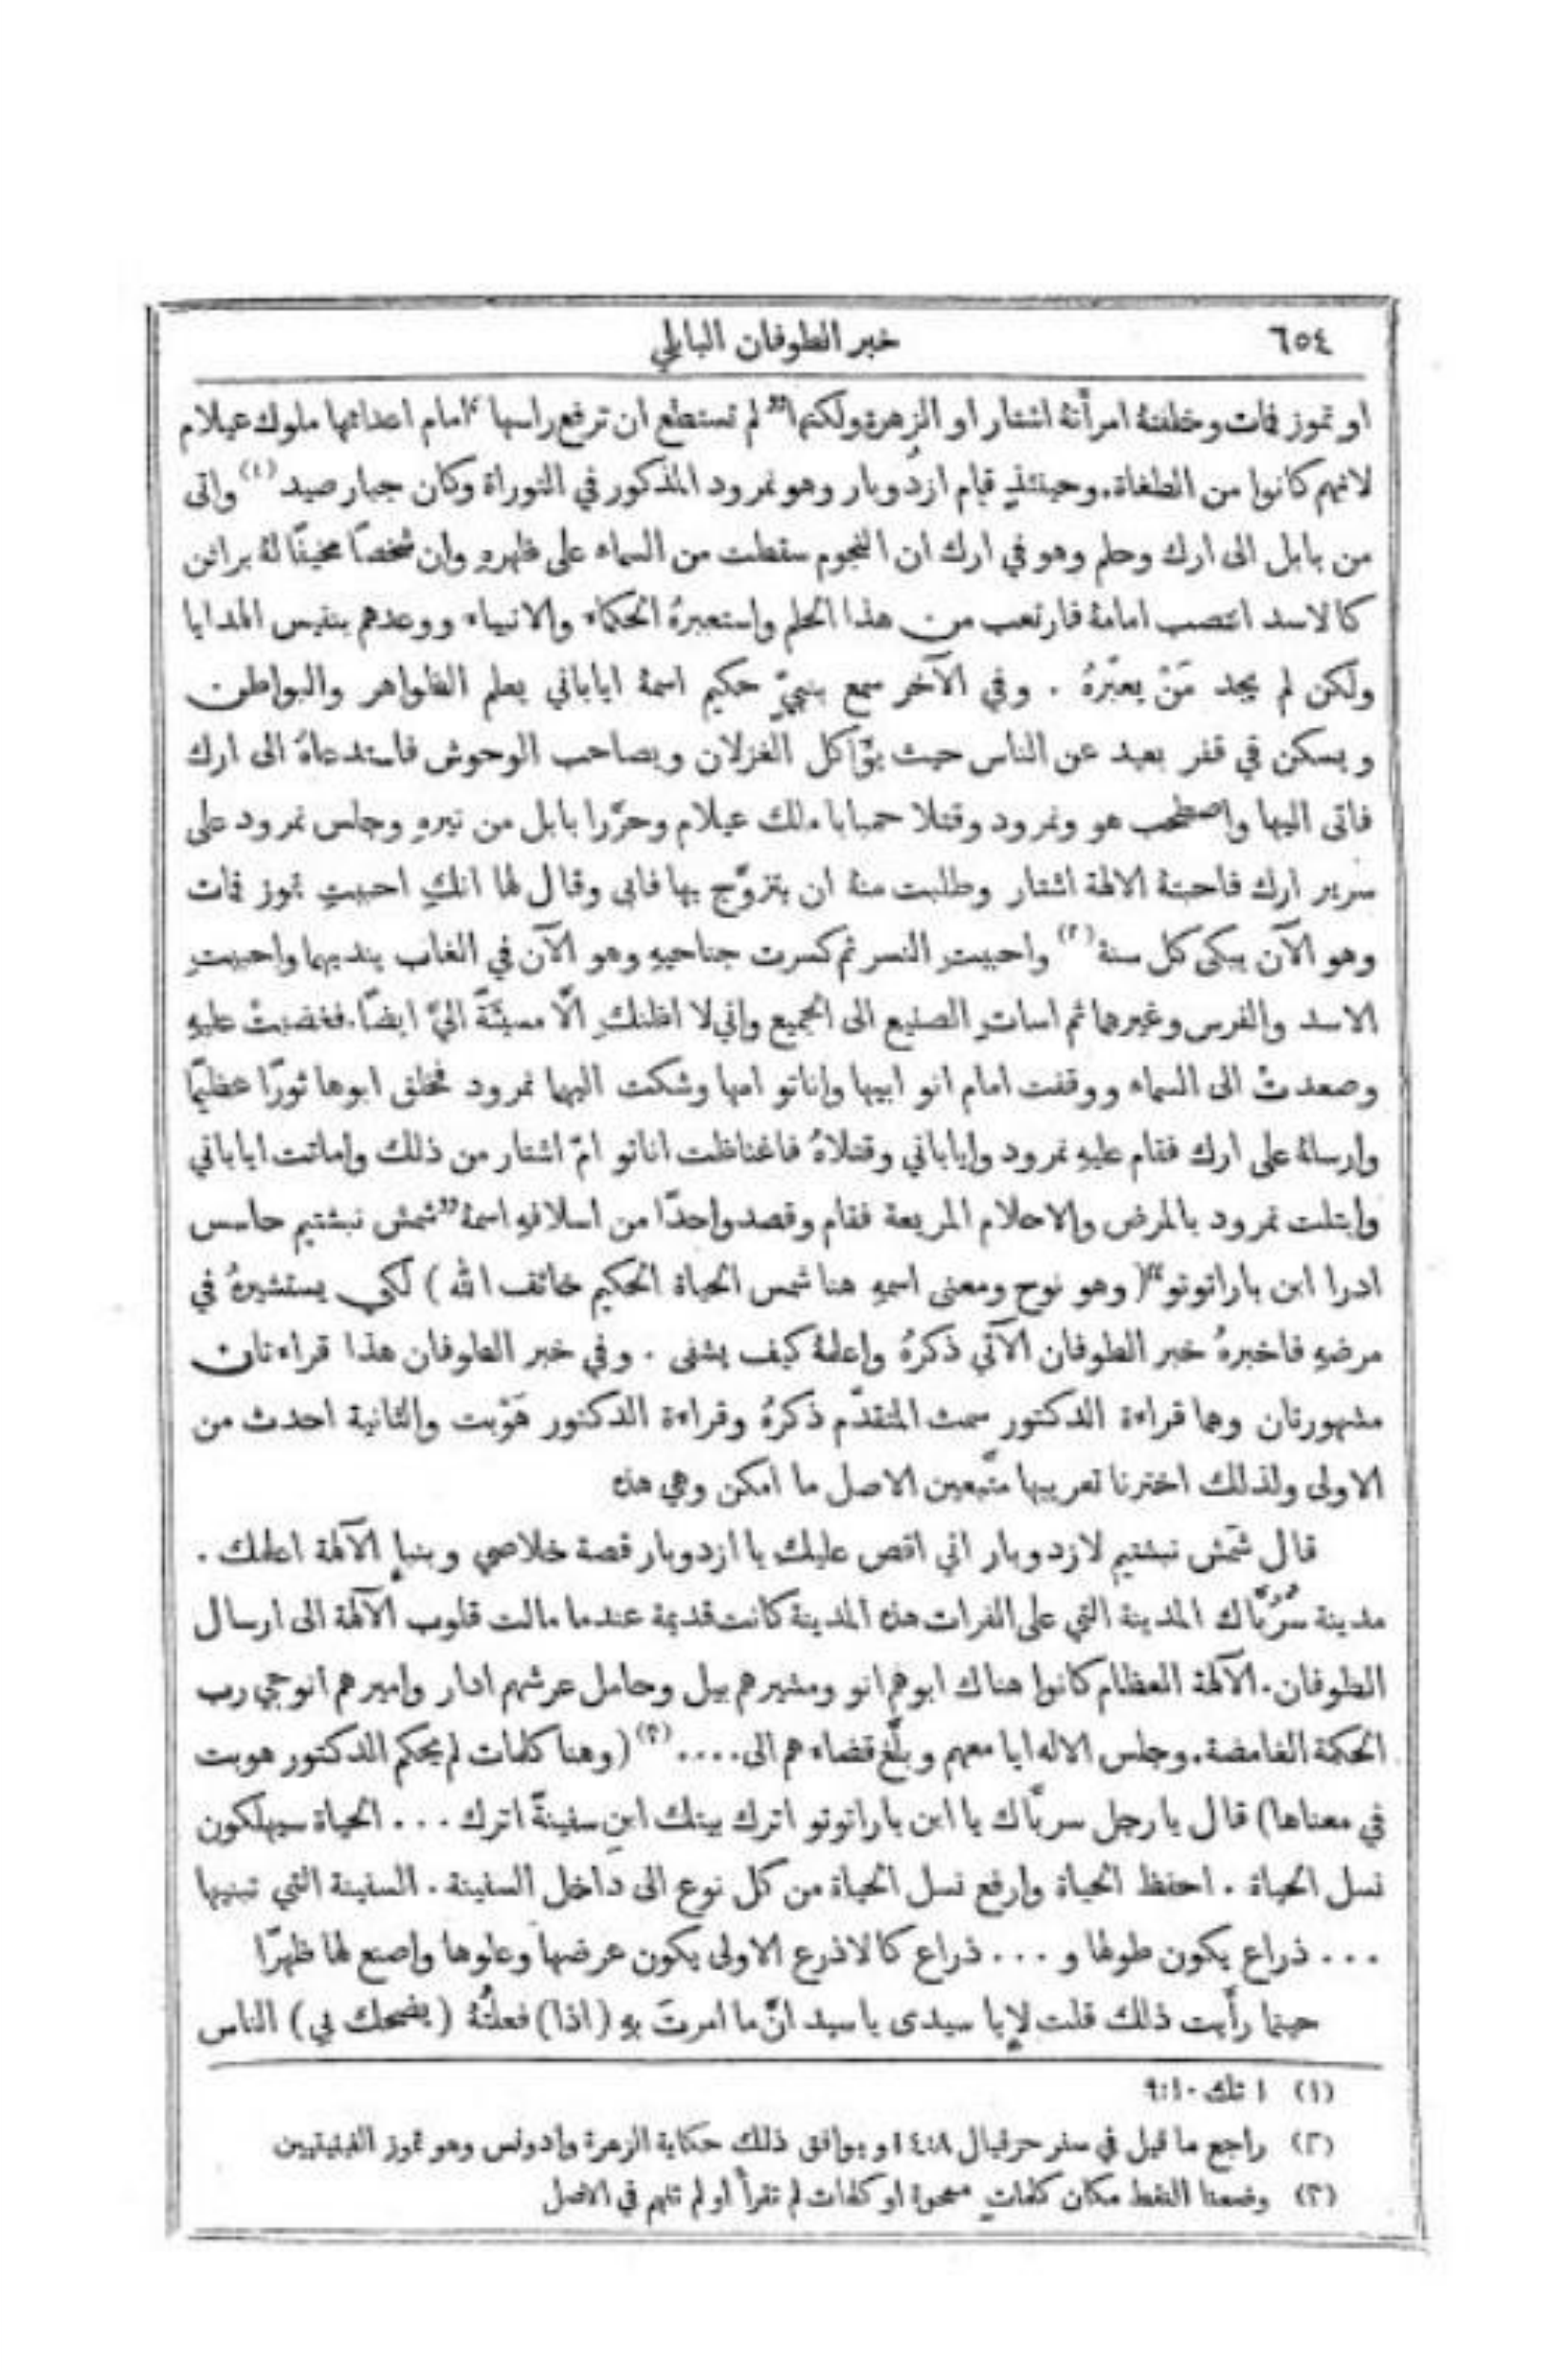 ٦٥٤
خبر الطوفان البابلي
او تموز فمات وخلفتهُ امرأَتهُ اشتار او الزهرة ولكنها" لم تستطع ان ترفع راسها" امام اعدائها ملوك عيلام
لانهم كانوا من الطغاة. وحينئذٍ قام ازدوبار وهو نمرود المذكور في التوراة وكان جبار صيد (١) واتى
من بابل الى ارك وحلم وهو في ارك ان النجوم سقطت من السماء على ظهرهِ وان شخصًا مخيفًا لهُ براثن
كالاسد انتصب امامهُ فارتعب من هذا الحلم واستعبرهُ الحكماء والانبياء ووعدهم بنفيس الهدايا
ولكن لم يجد مَنْ يعبّرهُ . وفي الآخر سمع بنبيٍّ حكيم اسمهُ اياباني يعلم الظواهر والبواطن
ويسكن في قفر بعيد عن الناس حيث يؤَاكل الغزلان ويصاحب الوحوش فاستدعاهُ الى ارك
فاتى اليها واصطحب هو ونمرود وقتلا حمبابا ملك عيلام وحرّرا بابل من نيرهِ وجلس نمرود على
سرير ارك فاحبتهُ الالهة اشتار وطلبت منهُ ان يتزوّج بها فابى وقال لها انكِ احببتِ تموز فمات
وهو الآن يبكى كل سنة (٢) واحببتِ النسر ثم كسرت جناحيهِ وهو الآن في الغاب يندبهما واحببتِ
الاسد والفرس وغيرهما ثم اساتِ الصنيع الى الجميع واني لا اظنكِ الَّا مسيئَةً اليَّ ايضًا. فغضبتْ عليهِ
وصعدتْ الى السماء ووقفت امام انو ابيها واناتو امها وشكت اليهما نمرود فخلق ابوها ثورًا عظيمًا
وارسلهُ على ارك فقام عليهِ نمرود واياباني وقتلاهُ فاغتاظت اناتو امّ اشتار من ذلك واماتت اياباني
وابتلت نمرود بالمرض والاحلام المريعة فقام وقصد واحدًا من اسلافهِ اسمهُ "شمش نبشتيم حاسس
ادرا ابن باراتوتو" (وهو نوح ومعنى اسمهِ هنا شمس الحياة الحكيم خائف الله) لكي يستشيرهُ في
مرضهِ فاخبرهُ خبر الطوفان الآتي ذكرهُ واعلمهُ كيف يشفى . وفي خبر الطوفان هذا قراءتان
مشهورتان وهما قراءة الدكتور سمث المتقدّم ذكرهُ وقراءة الدكتور هَوْبت والثانية احدث من
الاولى ولذلك اخترنا تعريبها متّبعين الاصل ما امكن وهي هذه
قال شَمَش نبشتيم لازدوبار اني اقص عليك يا ازدوبار قصة خلاصي وبنبإِ الآلهة اعلمك .
مدينة سُرُبَّاك المدينة التي على الفرات هذه المدينة كانت قديمة عندما مالت قلوب الآلهة الى ارسال
الطوفان. الآلهة العظام كانوا هناك ابوهم انو ومشيرهم بيل وحامل عرشهم ادار واميرهم انوجي رب
الحكمة الغامضة. وجلس الاله ايا معهم وبلَّغ قضاءهم الى.... (٣) (وهنا كلمات لم يحكم الدكتور هوبت
في معناها) قال يا رجل سربَّاك يا ابن باراتوتو اترك بيتك ابنِ سفينةً اترك ... الحياة سيهلكون
نسل الحياة . احفظ الحياة وارفع نسل الحياة من كل نوع الى داخل السفينة . السفينة التي تبنيها
... ذراع يكون طولها و ... ذراع كالاذرع الاولى يكون عرضها وعلوها واصنع لها ظهرًا
حينما رأَيت ذلك قلت لإِيا سيدى يا سيد انَّ ما امرتَ بهِ (اذا) فعلتُهُ (يضحك بي) الناس
(١) ا تك ١٠:٩
(٢) راجع ما قيل في سفر حزقيال ٨:١٤ ويوافق ذلك حكاية الزهرة وادونس وهو تموز الفينيقيين
(٣) وضعنا النقط مكان كلماتٍ ممحوة او كلمات لم تقرأ او لم تفهم في الاصل